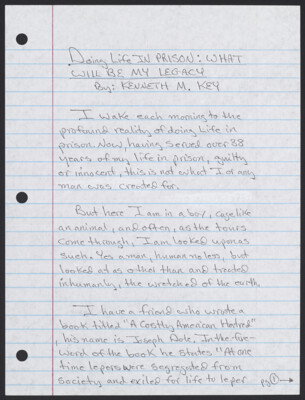 Doing Life IN PRISON: WHAT
WILL BE MY LEGACY
By: KENNETH M. KEY
I wake each morning to the
profound reality of doing Life in
prison. Now, having served over 38
years of my life in prison, guilty
or innocent, this is not what I or any
man was created for.
But here I am in a box, cage like
an animal, and often, as the tours
come through, I am looked upon as
such. Yes a man, human no less, but
looked at as other than and treated
inhumanly, the wretched of the earth.
I have a friend who wrote a
book titled "A Costly American Hatred",
his name is Joseph Dole. In the fore-
word of the book he states "At one
time lepers were segregated from
society and exiled for life to leper
pg 1 →